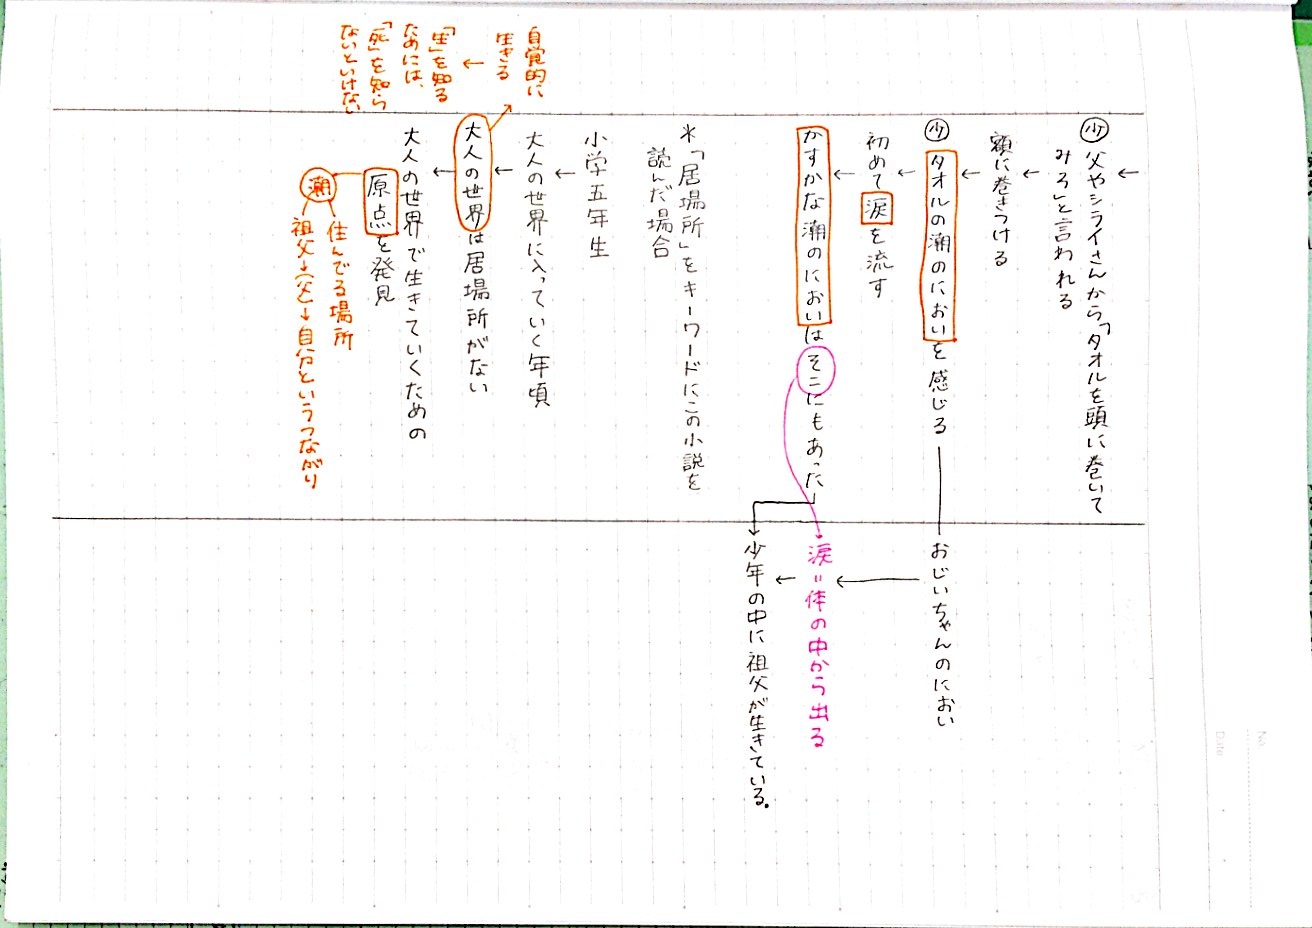 少 父やシライさんから「タオルを頭に巻いて
みろ」と言われる
額に巻きつける
少 タオルの潮のにおいを感じる
おじいちゃんのにおい
初めて涙を流す
かすかな潮のにおいはそこにもあった」
涙=体の中から出る
少年の中に祖父が生きている。
*「居場所」をキーワードにこの小説を
読んだ場合
小学五年生
大人の世界に入っていく年頃
大人の世界は居場所がない
自覚的に
生きる
「生」を知る
ためには、
「死」を知ら
ないといけない
大人の世界で生きていくための
原点を発見
潮
住んでる場所
祖父→父→自分というつながり
No
Date